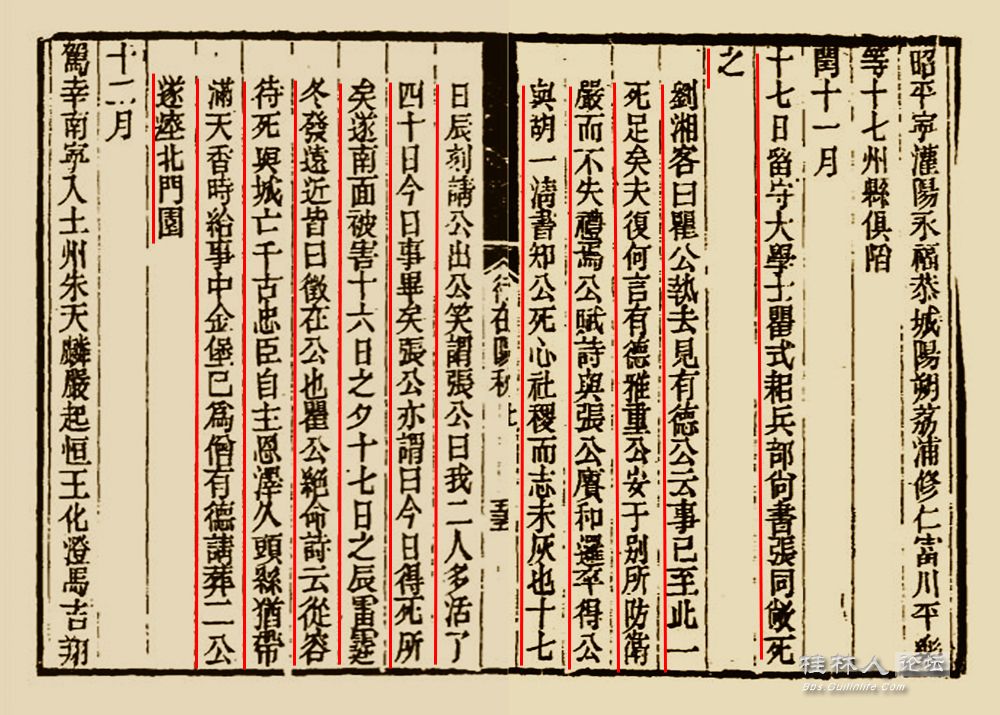 昭平寧灌陽永福恭城陽朔荔浦修仁富川平樂
等十七州縣俱陷
閏十一月
十七日留守大學士瞿式耜兵部尚書張同敞死
之
劉湘客曰瞿公執去見有德公云事已至此一
死足矣夫復何言有德雅重公安于别所防衛
嚴而不失禮焉公賦詩與張公賡和邏卒得公
與胡一清書知公死心社稷而志未灰也十七
行在陽秋 上
日辰刻請公出公笑謂張公曰我二人多活了
四十日今日事畢矣張公亦謂曰今日得死所
矣遂南面被害十六日之夕十七日之辰雷霆
冬發遠近皆曰徵在公也瞿公絶命詩云從容
待死與城亡千古忠臣自主恩澤久頭縣猶帶
滿天香時給事中金堡已為僧有德請葬二公
遂瘞北門園
十二月
駕幸南寧入土州朱天麟嚴起恒王化澄馬吉翔
桂林人论坛
Bbs.Guilinlife.Com